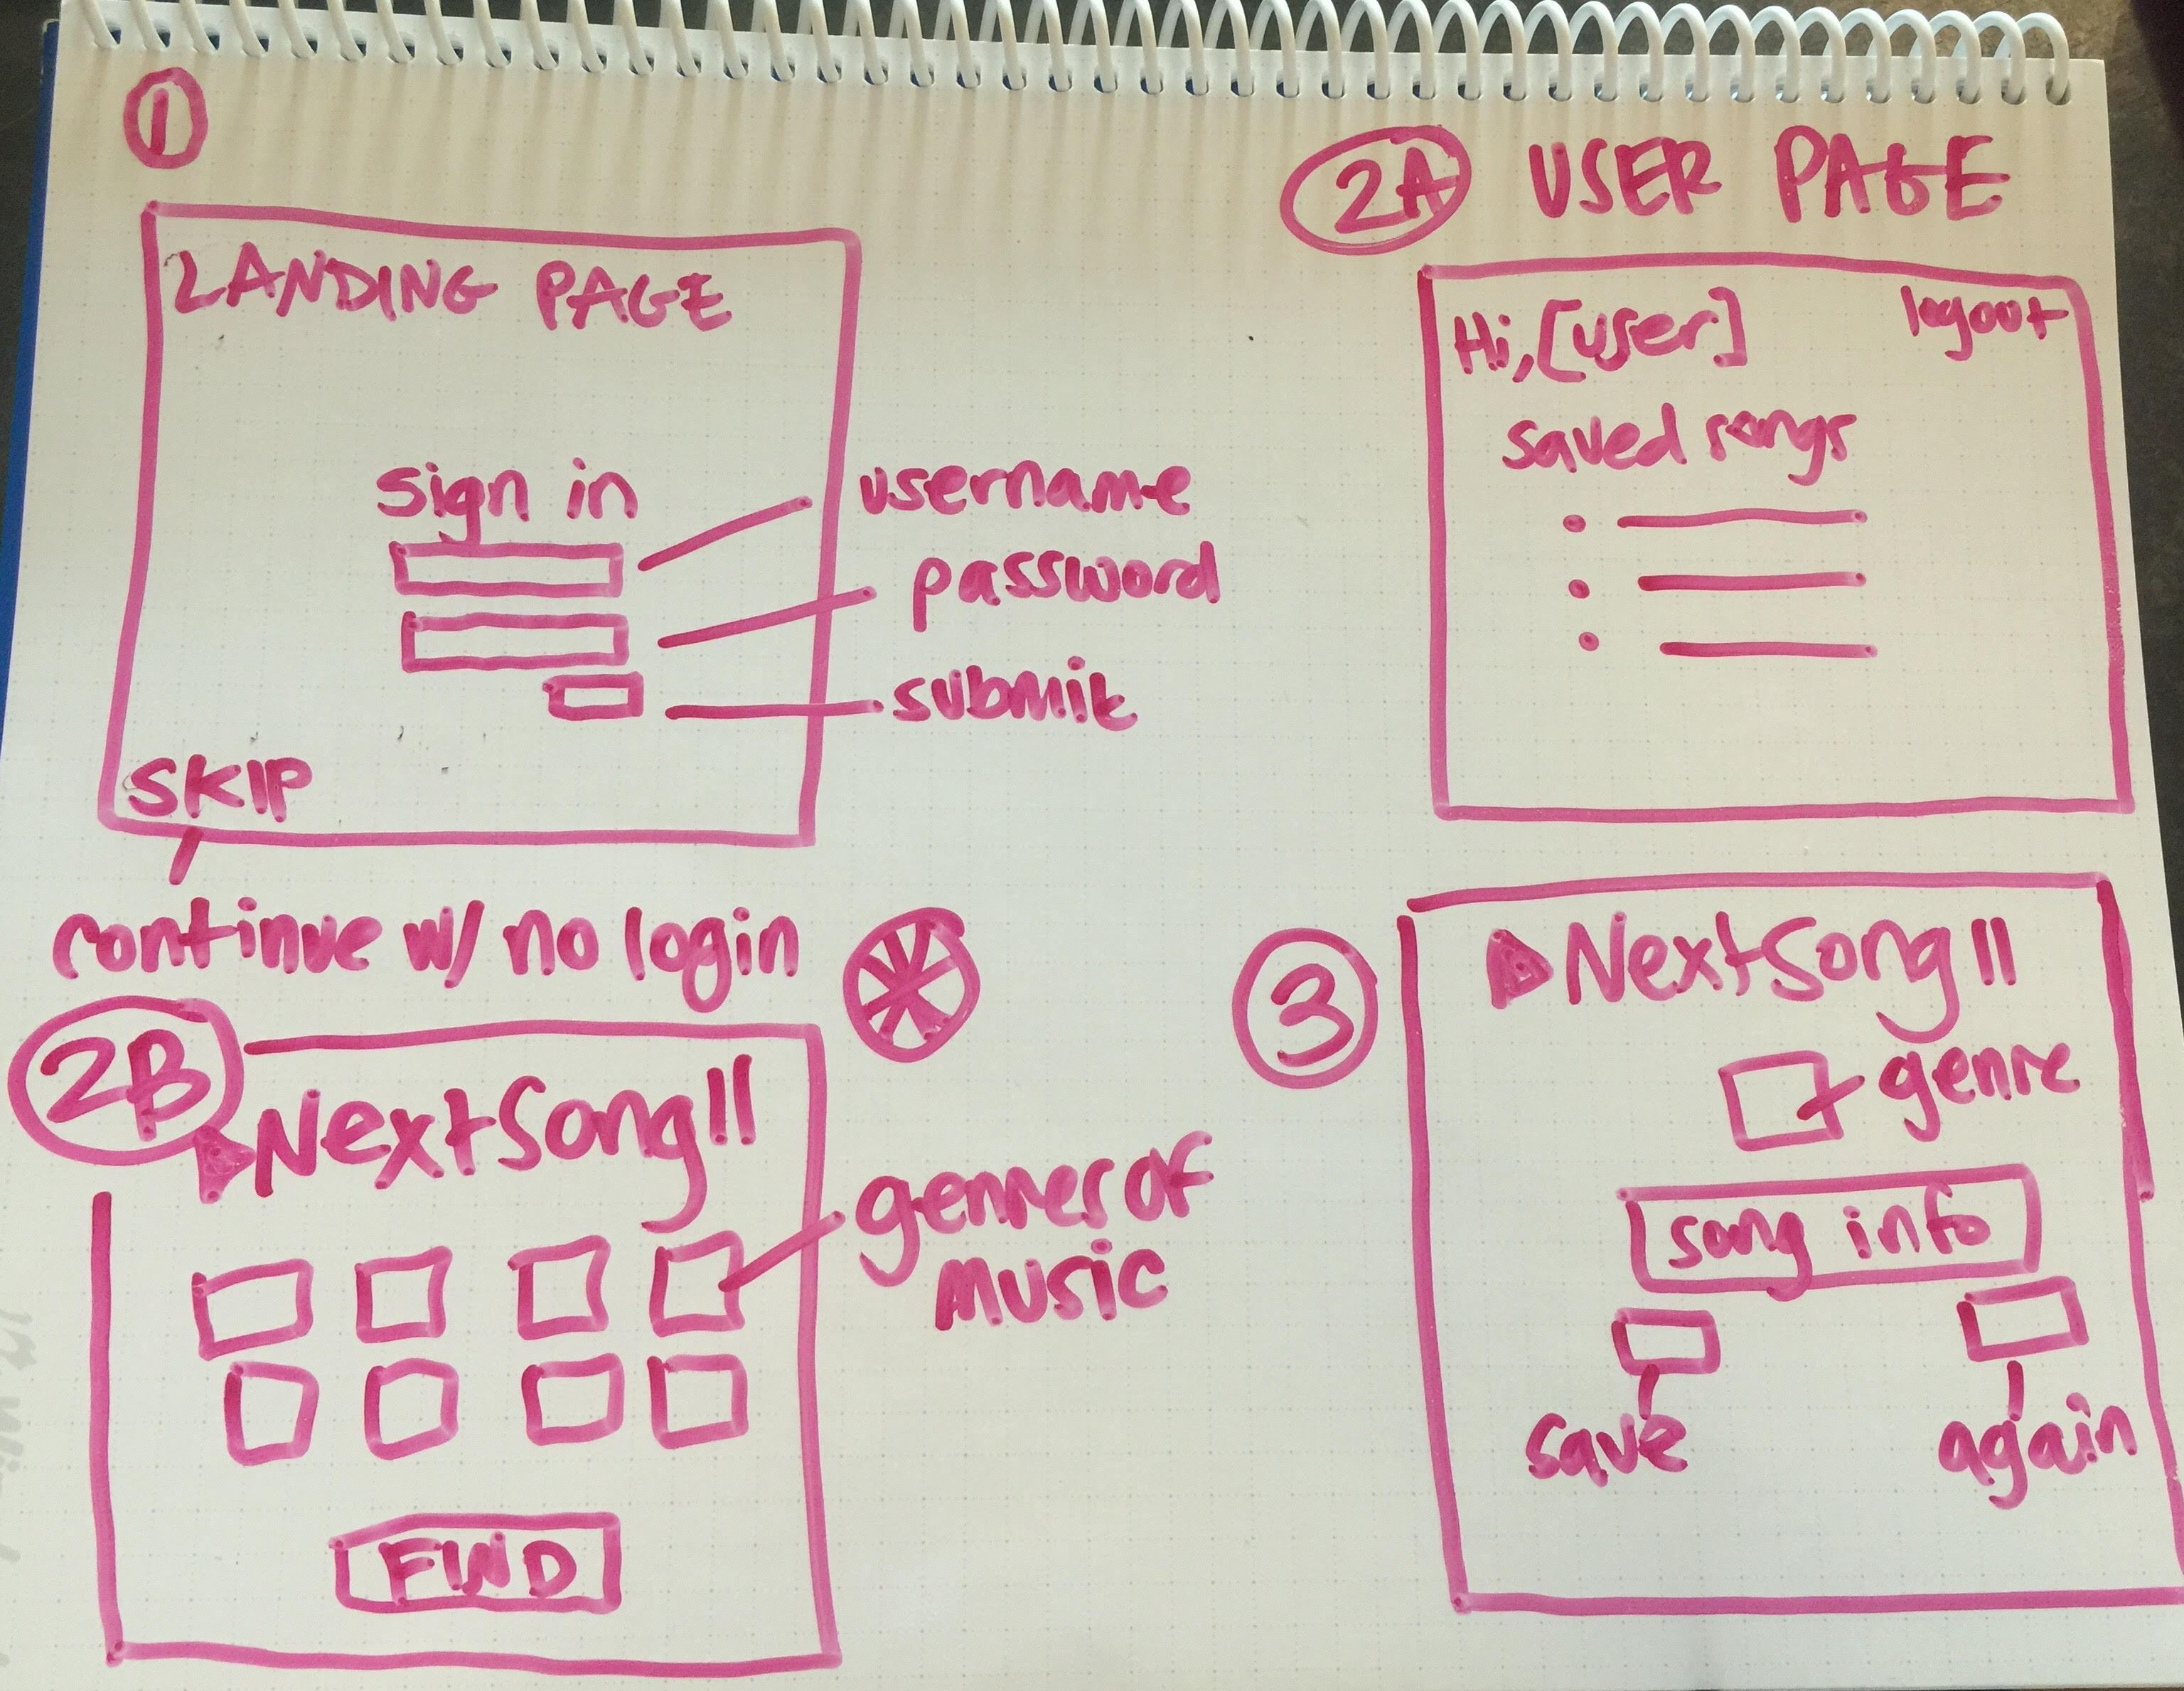 1
LANDING PAGE
sign in
username
password
submit
SKIP
continue w/ no login
2A USER PAGE
Hi, [user]
logout
saved songs
2B
NextSong
genres of
music
FIND
3
NextSong
genre
song info
save
again